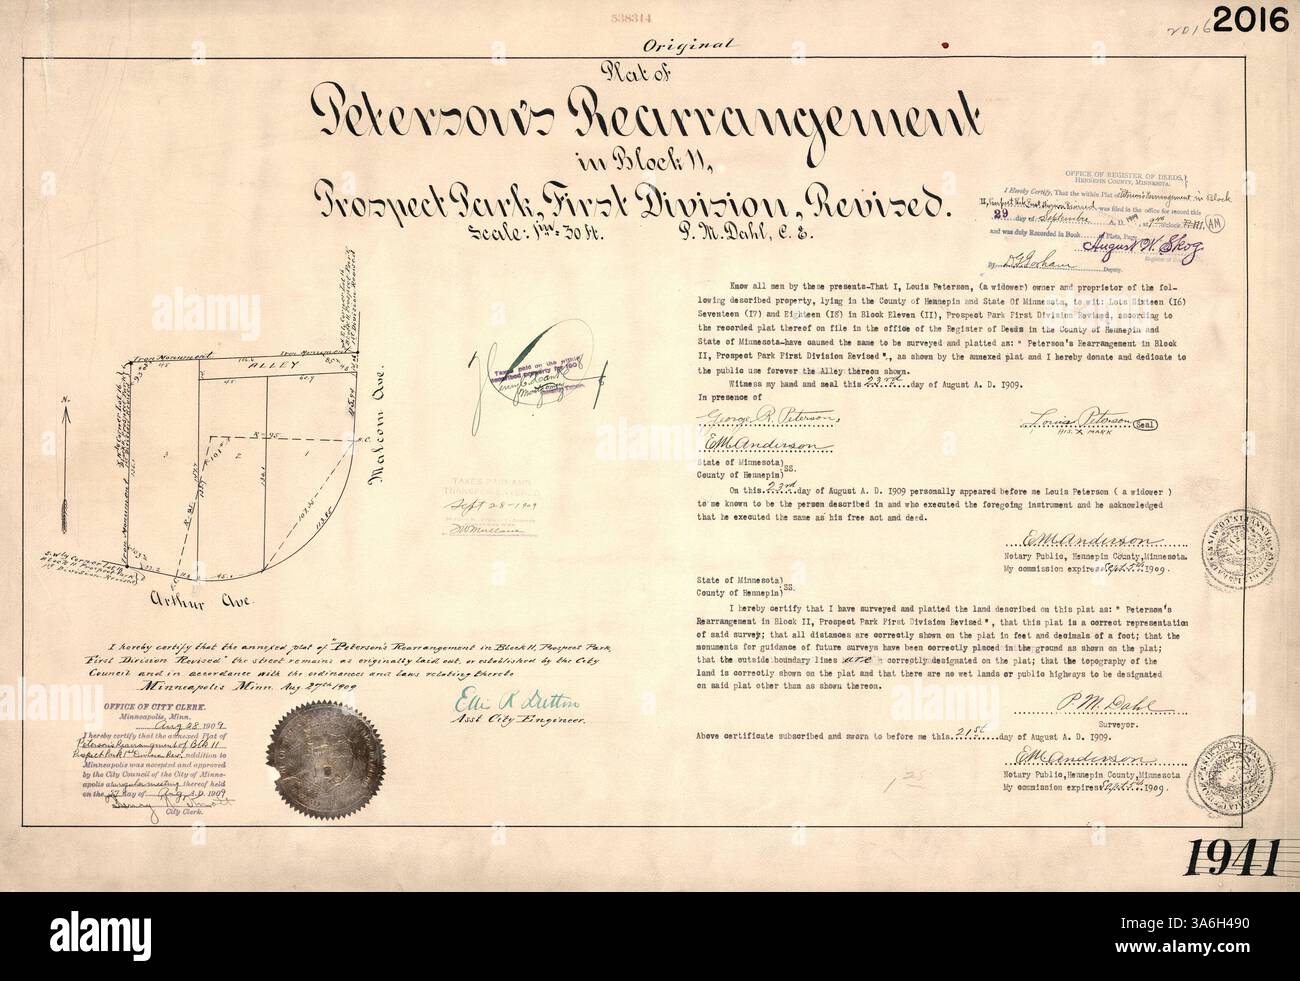 538314
2016 2016
Original
Plat of
Peterson's Rearrangement
in Block 11,
Prospect Park, First Division, Revised.
Scale: 1 in = 30 ft. P. M. Dahl, C. E.
OFFICE OF REGISTER OF DEEDS,
HENNEPIN COUNTY, MINNESOTA.
I Hereby Certify, That the within Plat of Peterson's Rearrangement in Block
11, Prospect Park First Division Revised was filed in the office for record this
29 day of September A. D. 1909, at 9 o'clock AM
and was duly Recorded in Book of Plats, Page
August W. Skog
Register of Deeds
By Deputy.
Know all men by these presents-That I, Louis Peterson, (a widower) owner and proprietor of the fol-
lowing described property, lying in the County of Hennepin and State Of Minnesota, to wit: Lots Sixteen (16)
Seventeen (17) and Eighteen (18) in Block Eleven (11), Prospect Park First Division Revised, according to
the recorded plat thereof on file in the office of the Register of Deeds in the County of Hennepin and
State of Minnesota-have caused the same to be surveyed and platted as: " Peterson's Rearrangement in Block
11, Prospect Park First Division Revised", as shown by the annexed plat and I hereby donate and dedicate to
the public use forever the Alley thereon shown.
Witness my hand and seal this 23rd day of August A. D. 1909.
In presence of
George R. Peterson,
Louis Peterson Seal
HIS X MARK
E M Anderson
State of Minnesota)
County of Hennepin) SS.
On this 23rd day of August A. D. 1909 personally appeared before me Louis Peterson ( a widower )
to me known to be the person described in and who executed the foregoing instrument and he acknowledged
that he executed the same as his free act and deed.
E M Anderson
Notary Public, Hennepin County, Minnesota.
My commission expires Sept 5th 1909.
State of Minnesota)
County of Hennepin) SS.
I hereby certify that I have surveyed and platted the land described on this plat as: " Peterson's
Rearrangement in Block 11, Prospect Park First Division Revised", that this plat is a correct representation
of said survey; that all distances are correctly shown on the plat in feet and decimals of a foot; that the
monuments for guidance of future surveys have been correctly placed in the ground as shown on the plat;
that the outside boundary lines are correctly designated on the plat; that the topography of the
land is correctly shown on the plat and that there are no wet lands or public highways to be designated
on said plat other than as shown thereon.
P. M. Dahl
Surveyor.
Above certificate subscribed and sworn to before me this 21st day of August A. D. 1909.
E M Anderson
Notary Public, Hennepin County, Minnesota
My commission expires Sept 5th 1909.
Iron Monument Iron Monument
ALLEY
45 60.9
R-95
3 2 1
Malcom Ave.
N.
Iron Monument
107.35
113.85
45.
Arthur Ave.
Taxes paid on the within
described property for 190
TAXES PAID AND
TRANSFER ENTERED
Sept 28-1909
I hereby certify that the annexed plat of "Peterson's Rearrangement in Block 11, Prospect Park,
First Division Revised" the street remains as originally laid out, or established by the City
Council and in accordance with the ordinances and laws relating thereto
Minneapolis Minn. Aug 27th 1909
Ellis R Dutton
Asst City Engineer.
OFFICE OF CITY CLERK.
Minneapolis, Minn.
Aug 28 1909
I hereby certify that the annexed Plat of
Peterson's Rearrangement of Blk 11
Prospect Park 1st Division Rev. addition to
Minneapolis was accepted and approved
by the City Council of the City of Minne-
apolis at a regular meeting thereof held
on the 27 day of Aug A.D. 1909
City Clerk.
1941
alamy
Image ID: 3A6H490
www.alamy.com